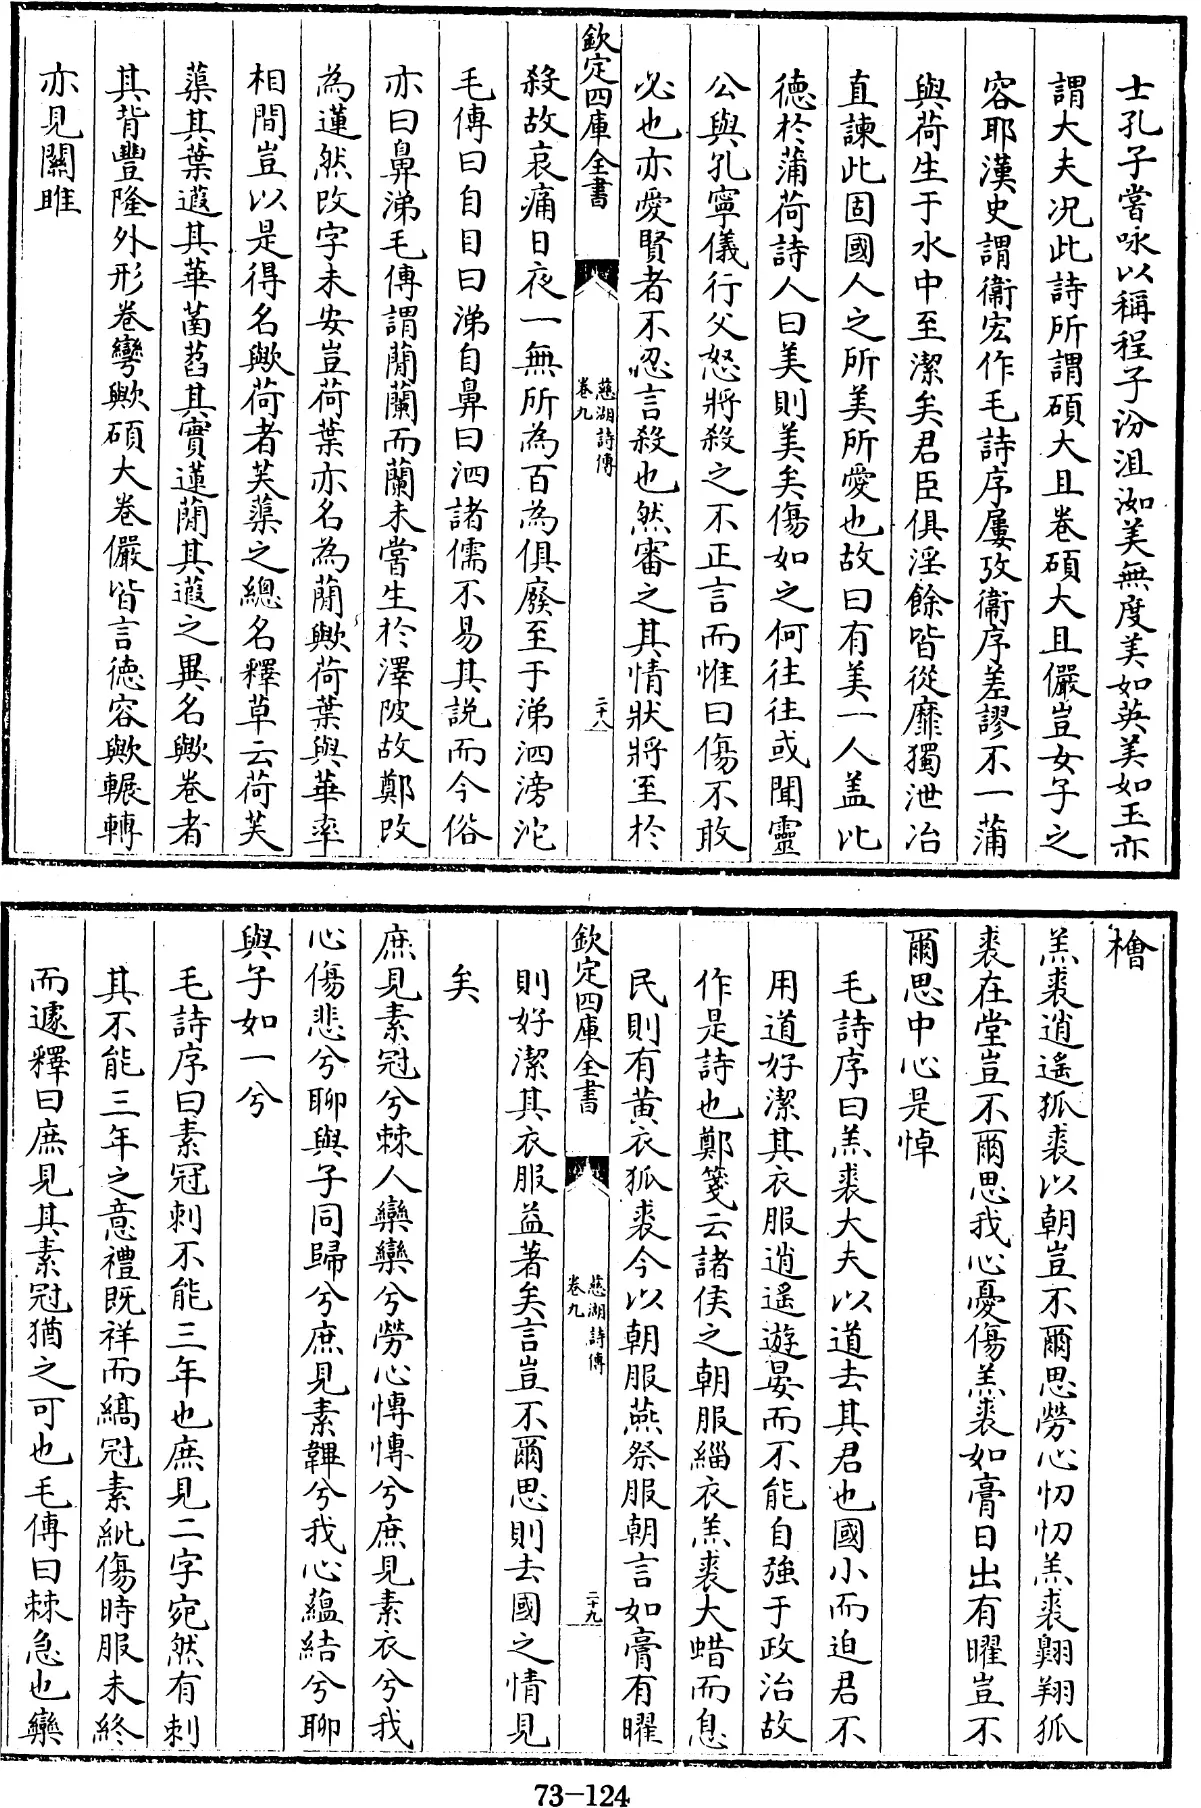 士孔子嘗咏以稱程子汾沮洳美無度美如英美如玉亦
謂大夫况此詩所謂碩大且卷碩大且儼豈女子之
容耶漢史謂衞宏作毛詩序屢攷衞序差謬不一蒲
與荷生于水中至潔矣君臣俱淫餘皆從靡獨泄冶
直諫此固國人之所美所愛也故曰有美一人盖比
德於蒲荷詩人曰美則美矣傷如之何往往或聞靈
公與孔寧儀行父怒將殺之不正言而惟曰傷不敢
必也亦愛賢者不忍言殺也然審之其情狀將至於
欽定四庫全書
慈湖詩傳
卷九
二十八
殺故哀痛日夜一無所為百為俱廢至于涕泗滂沱
毛傳曰自目曰涕自鼻曰泗諸儒不易其説而今俗
亦曰鼻涕毛傳謂蕑蘭而蘭未嘗生於澤陂故鄭改
為蓮然改字未安豈荷葉亦名為蕑歟荷葉與華率
相間豈以是得名歟荷者芙蕖之總名釋草云荷芙
蕖其葉蕸其華菡萏其實蓮蕑其蕸之異名歟卷者
其背豐隆外形卷彎歟碩大卷儼皆言德容歟輾轉
亦見關雎
檜
羔裘逍遥狐裘以朝豈不爾思勞心忉忉羔裘翱翔狐
裘在堂豈不爾思我心憂傷羔裘如膏日出有曜豈不
爾思中心是悼
毛詩序曰羔裘大夫以道去其君也國小而迫君不
用道好潔其衣服逍遥遊晏而不能自強于政治故
作是詩也鄭箋云諸侯之朝服緇衣羔裘大蜡而息
民則有黄衣狐裘今以朝服燕祭服朝言如膏有曜
欽定四庫全書
慈湖詩傳
卷九
二十九
則好潔其衣服益著矣言豈不爾思則去國之情見
矣
庶見素冠兮棘人欒欒兮勞心慱慱兮庶見素衣兮我
心傷悲兮聊與子同歸兮庶見素韠兮我心藴結兮聊
與子如一兮
毛詩序曰素冠刺不能三年也庶見二字宛然有刺
其不能三年之意禮既祥而縞冠素紕傷時服未終
而遽釋曰庶見其素冠猶之可也毛傳曰棘急也欒
73-124